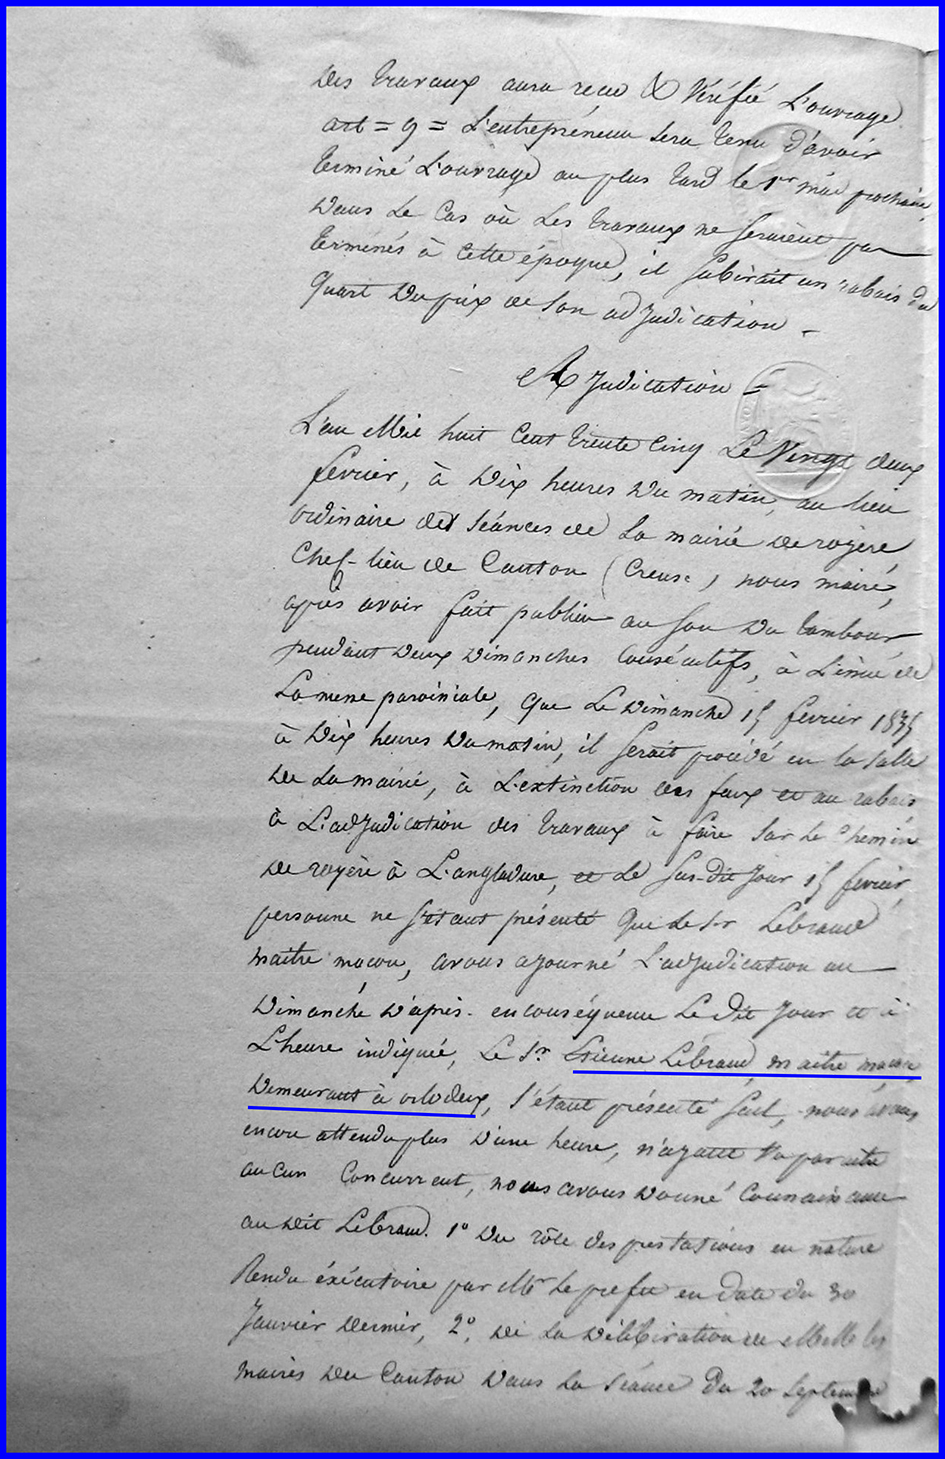 des travaux aura reçu & vérifié l'ouvrage
art = 9 = L'entrepreneur sera tenu d'avoir
terminé l'ouvrage au plus tard le 1er mai prochain,
dans le cas où les travaux ne seraient pas
terminés à cette époque, il subirait un rabais du
quart du prix de son adjudication -
Adjudication =
L'an mil huit cent trente cinq le vingt deux
février, à dix heures du matin, au lieu
ordinaire des séances de la mairie de royère
chef-lieu de Canton (Creuse) nous maire,
après avoir fait publier au son du tambour
pendant deux dimanches consécutifs, à l'issue de
la messe paroissiale, que le dimanche 15 février 1835
à dix heures du matin, il serait procédé en la salle
de la mairie, à l'extinction des feux et au rabais
à l'adjudication des travaux à faire sur le chemin
de royère à Langladure, et le sus-dit jour 15 février,
personne ne s'étant présenté que le Sr Lebraud
maître maçon, avons ajourné l'adjudication au
dimanche d'après. en conséquence le dit jour et à
l'heure indiquée, le Sr Etienne Lebraud, maître maçon
demeurant à , s'étant présenté seul, nous avons
encore attendu plus d'une heure, n'ayant vu paraître
aucun concurrent, nous avons donné connaissance
au dit Lebraud. 1° du rôle des prestations en nature
Rendu éxécutoire par Mr le préfet en date du 30
Janvier dernier, 2°. de la délibération de les
maires du Canton dans la séance du 20 septembre